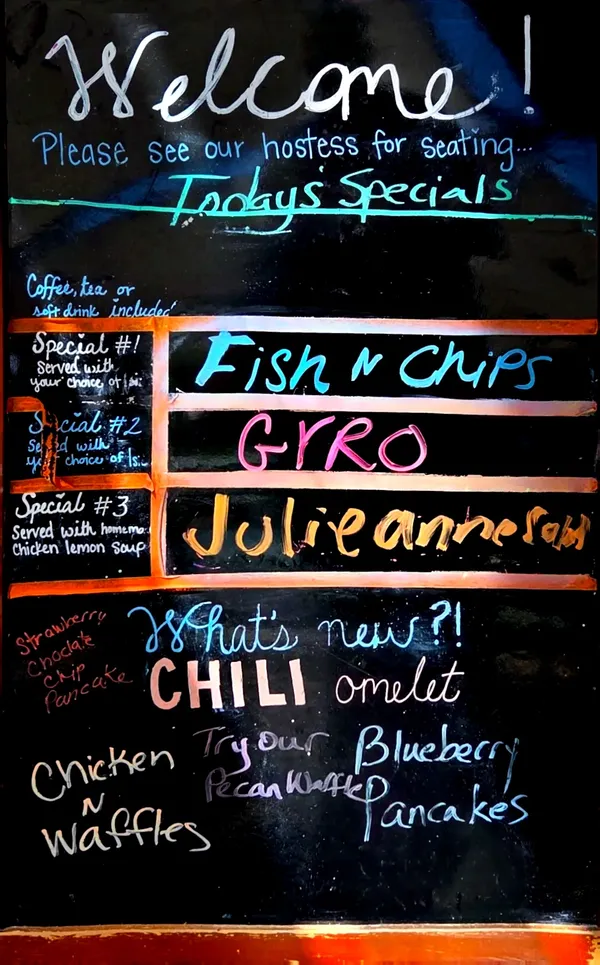 Welcome!
Please see our hostess for seating...
Today's Specials
Coffee, tea or
soft drink included
Special #1
Served with
your choice of 1 si
Fish N Chips
Special #2
Served with
your choice of 1 si
GYRO
Special #3
Served with homema
Chicken lemon soup
Julieanne Salad
What's new?!
Strawberry
Choclate
Chip
Pancake
CHILI omelet
Chicken
N
Waffles
Try our
Pecan Waffle
Blueberry
Pancakes